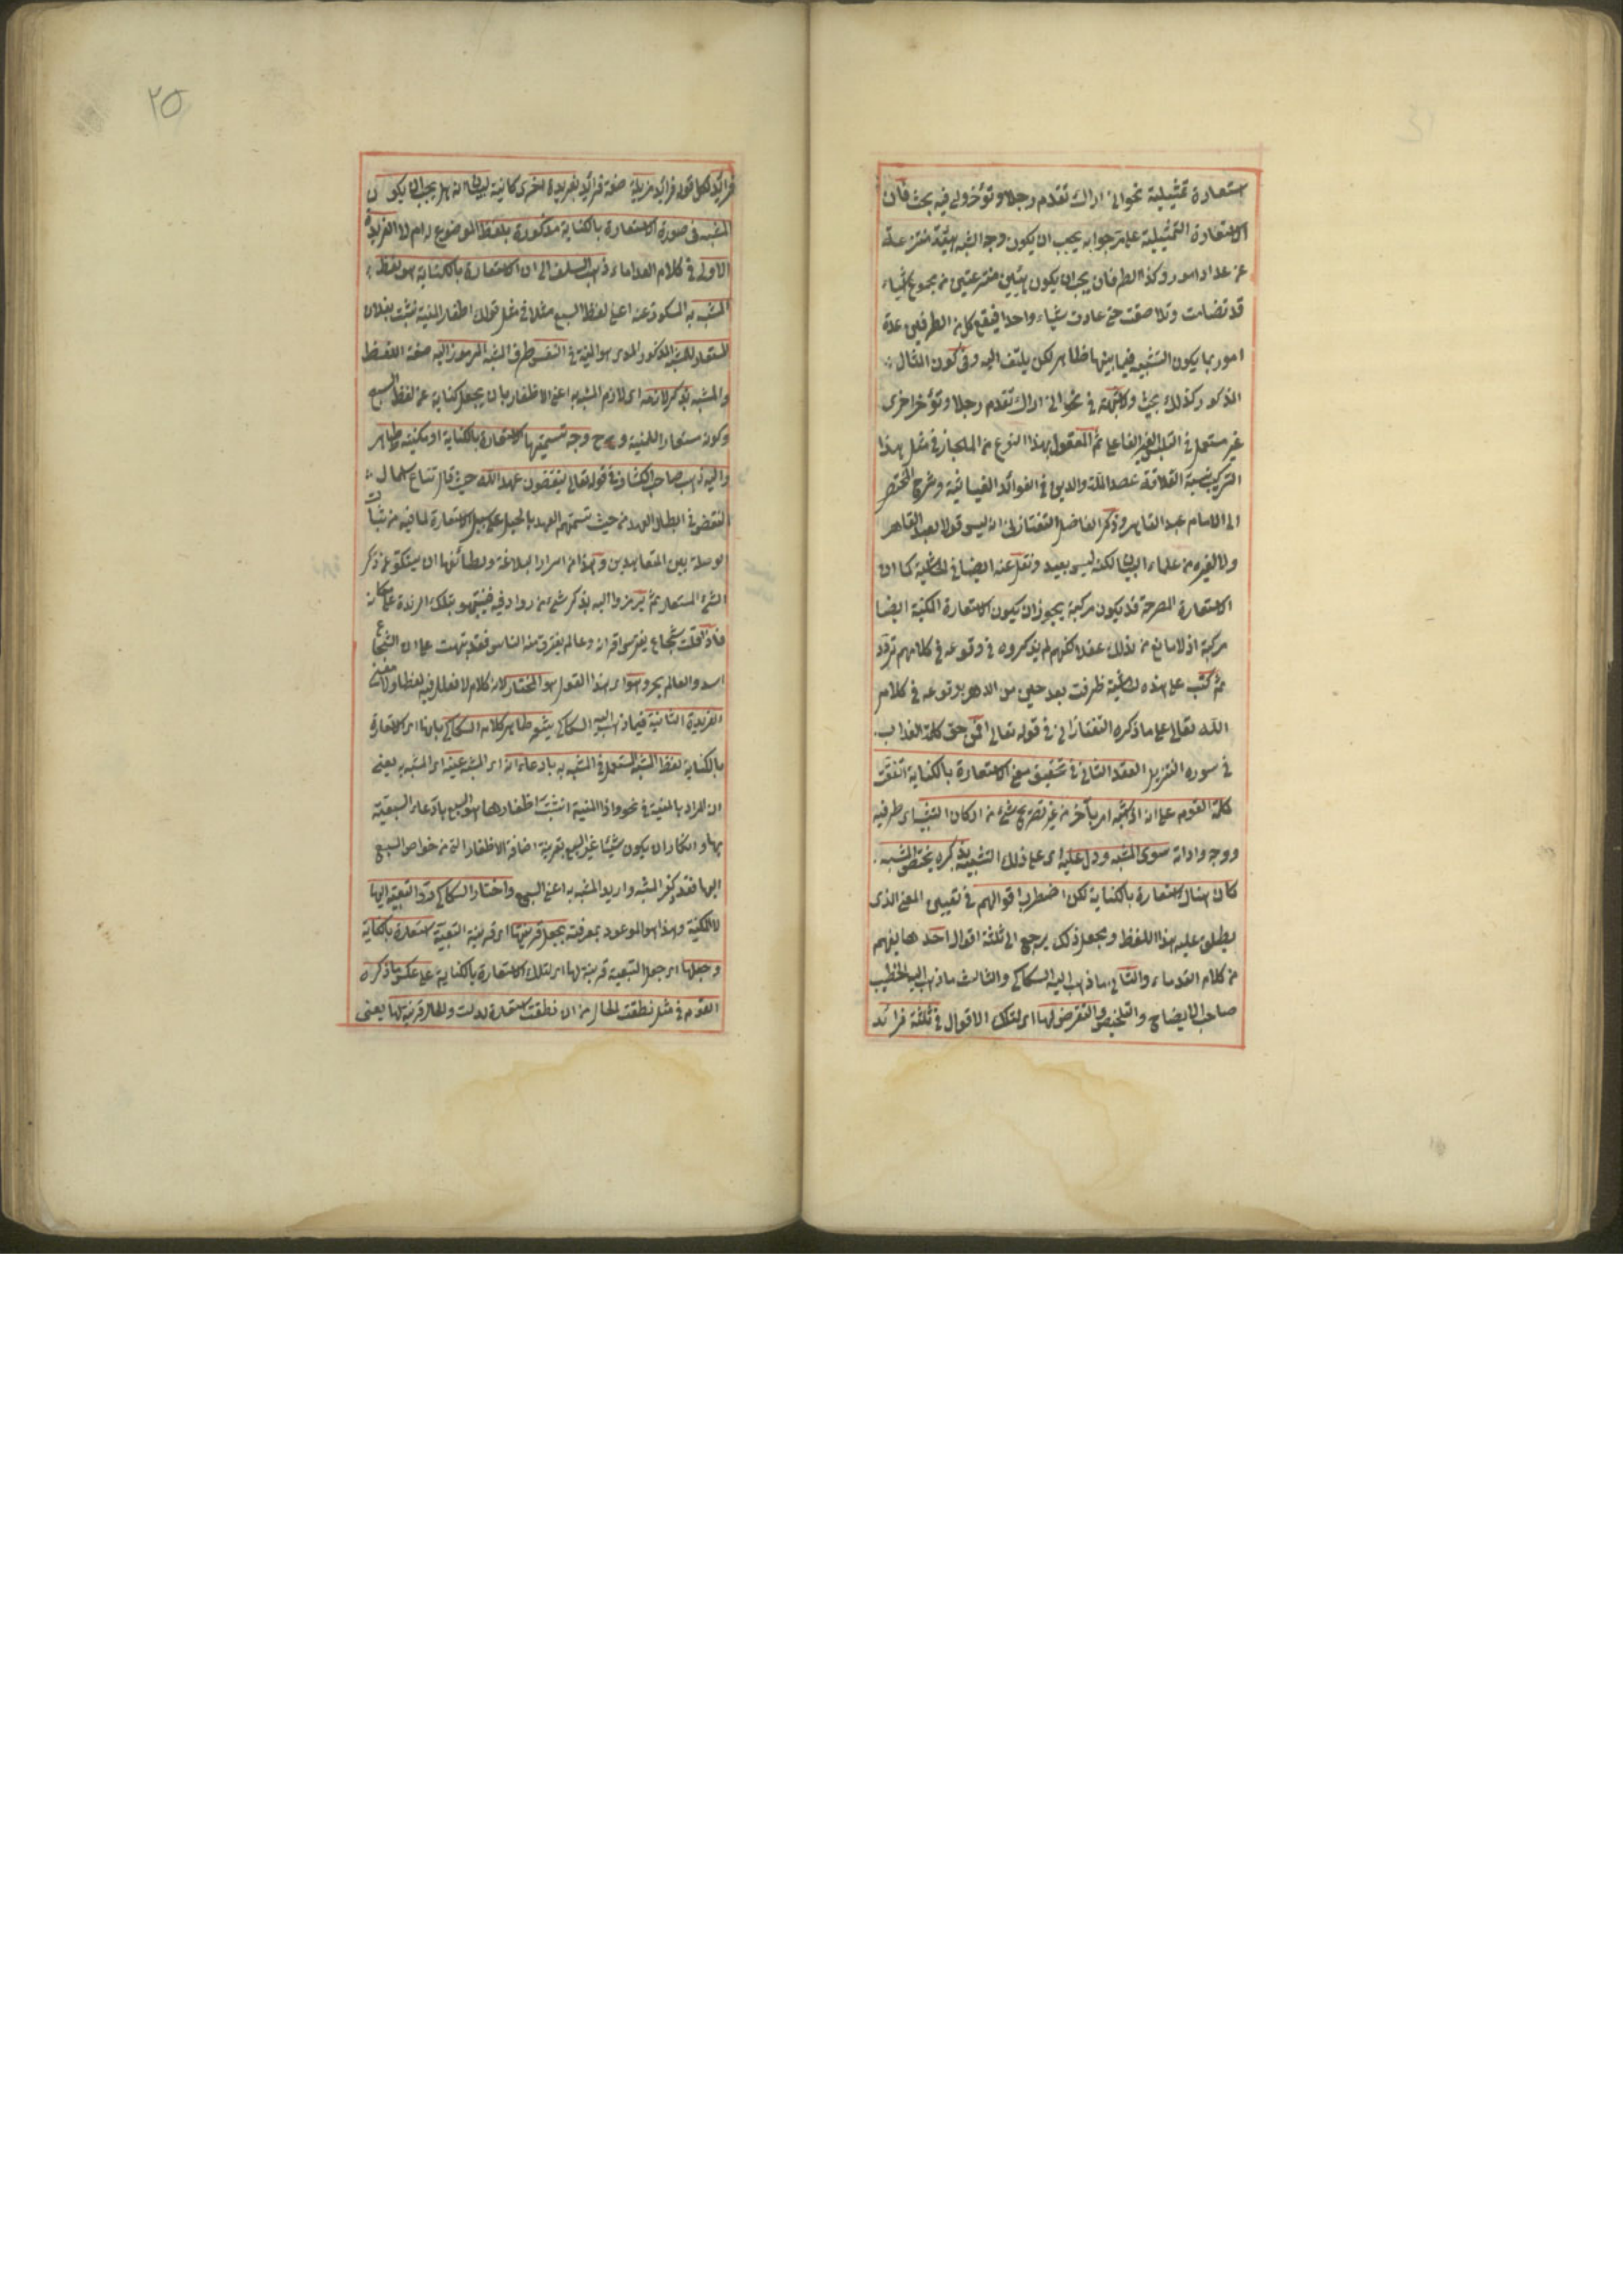 استعارة تمثيلية نحو انى اراك تقدم رجلا وتؤخر اخرى فيه بحث فان
الاستعارة التمثيلية على ما حرجوا به يجب ان يكون وجه الشبه هيئة منتزعة
عن عدة امور وكذا الطرفان يجب ان يكون هيئتين منتزعتين من مجموع اشياء
قد تضامت وتلاصقت حتى عادت شيئا واحدا فيقع كل من الطرفين عدة
امور ربما يكون التشبيه فيما بينها ظاهر لكن يلتفت اليه وفى كون المثال
المذكور كذلك بحث نحو انى اراك تقدم رجلا وتؤخر اخرى
غير مستعمل فى ثم المعقول بهذا النوع من المجاز فى مثل هذا
التركيب نسبة العلامة عضد الملة والدين فى الفوائد الغياثية وشرح المختصر
الى الامام عبد القاهر وذكر الفاضل التفتازانى انه ليس قولا لعبد القاهر
ولا لغيره من علماء البيان لكنه ليس ببعيد ونقل عنه ايضا فى الحاشية كما ان
الاستعارة المصرحة قد يكون مركبة يجوز ان يكون الاستعارة المكنية ايضا
مركبة اذ لا مانع من ذلك عقلا لكنهم لم يذكروه فى وقوعه فى كلامهم تردد
ثم كتب على هذه الحاشية ظفرت بعد حين من الدهر بوقوعه فى كلام
الله تعالى على ما ذكره التفتازانى فى قوله تعالى افمن حق كلمة العذاب
فى سورة التنزيل العقد الثانى فى تحقيق معنى الاستعارة بالكناية اتفقت
كلمة القوم على انه اذا شبه امر بآخر من غير تصريح بشئ من اركان التشبيه اى طرفيه
ووجه واداته سوى المشبه ودل عليه اى على ذلك التشبيه بذكر ما يختص المشبه به
كان هناك استعارة بالكناية لكن اضطربت اقوالهم فى تعيين المعنى الذى
يطلق عليه هذا اللفظ ومحصل ذلك يرجع الى ثلثة اقوال احدها يفهم
من كلام القدماء والثانى ما ذهب اليه السكاكى والثالث ما ذهب اليه الخطيب
صاحب الايضاح والتلخيص والتعرض لها اى لتلك الاقوال فى ثلثة فرائد
فرائد لكل قول فرائد مزيلة صفة فرائد بفريدة اخرى لبيان انه هل يجب ان يكون
المشبه فى صورة الاستعارة بالكناية مذكورة بلفظ الموضوع له ام لا الفريدة
الاولى فى كلام القدماء ذهب السلف الى ان الاستعارة بالكناية هو لفظ
المشبه به المسكوت عنه اعنى لفظ السبع مثلا فى مثل قولك اظفار المنية نشبت بفلان
المستعار للمشبه المذكور الذى هو المنية فى النفس طرف المشبه المرموز اليه صفة اللفظ
والمشبه بذكر لازمه اى لازم المشبه به اعنى الاظفار بان يجعل كناية عن لفظ السبع
وكونه مستعارا للمنية وح وجه تسميتها الاستعارة بالكناية او مكنية ظاهر
واليه ذهب صاحب الكشاف فى قوله تعالى ينقضون عهد الله حيث قال شاع استعمال
النقض فى ابطال العهد من حيث تسميتهم العهد بالحبل على سبيل الاستعارة لما فيه من ثبات
الوصلة بين المتعاهدين وهذا من اسرار البلاغة ولطائفها ان يسكتوا عن ذكر
الشئ المستعار ثم يرمزوا اليه بذكر شئ من روادفه فينبهوا بتلك الرمزة على مكانه
فاذا قلت شجاع يفترس اقرانه وعالم يغترف منه الناس فقد نبهت على ان الشجاع
اسد والعالم بحر وهو اى هذا القول هو المختار لانه كلام لا فعل فيه لفظا ولا معنى
الفريدة الثانية فيما ذهب اليه السكاكى يشعر ظاهر كلام السكاكى بانها اى الاستعارة
بالكناية لفظ المشبه المستعمل فى المشبه به بادعاء انه اى المشبه عينه اى المشبه به يعنى
ان المراد بالمنية فى نحو واذا المنية انشبت اظفارها هو السبع بادعاء السبعية
لها وانكار ان يكون شيئا غير السبع بقرينة اضافة الاظفار التى من خواص السبع
اليها فقد ذكر المشبه واريد المشبه به اعنى السبع واختار السكاكى رد التبعية اليها
المكنية وهذا هو الموعود بمعرفته بجعل قرينتها اى قرينة التبعية استعارة بالكناية
وجعلها اى جعل التبعية قرينة لها اى لتلك الاستعارة بالكناية على عكس ما ذكره
القوم فى مثل نطقت الحال من ان نطقت استعارة لدلت والحال قرينة لها يعنى
٢٥